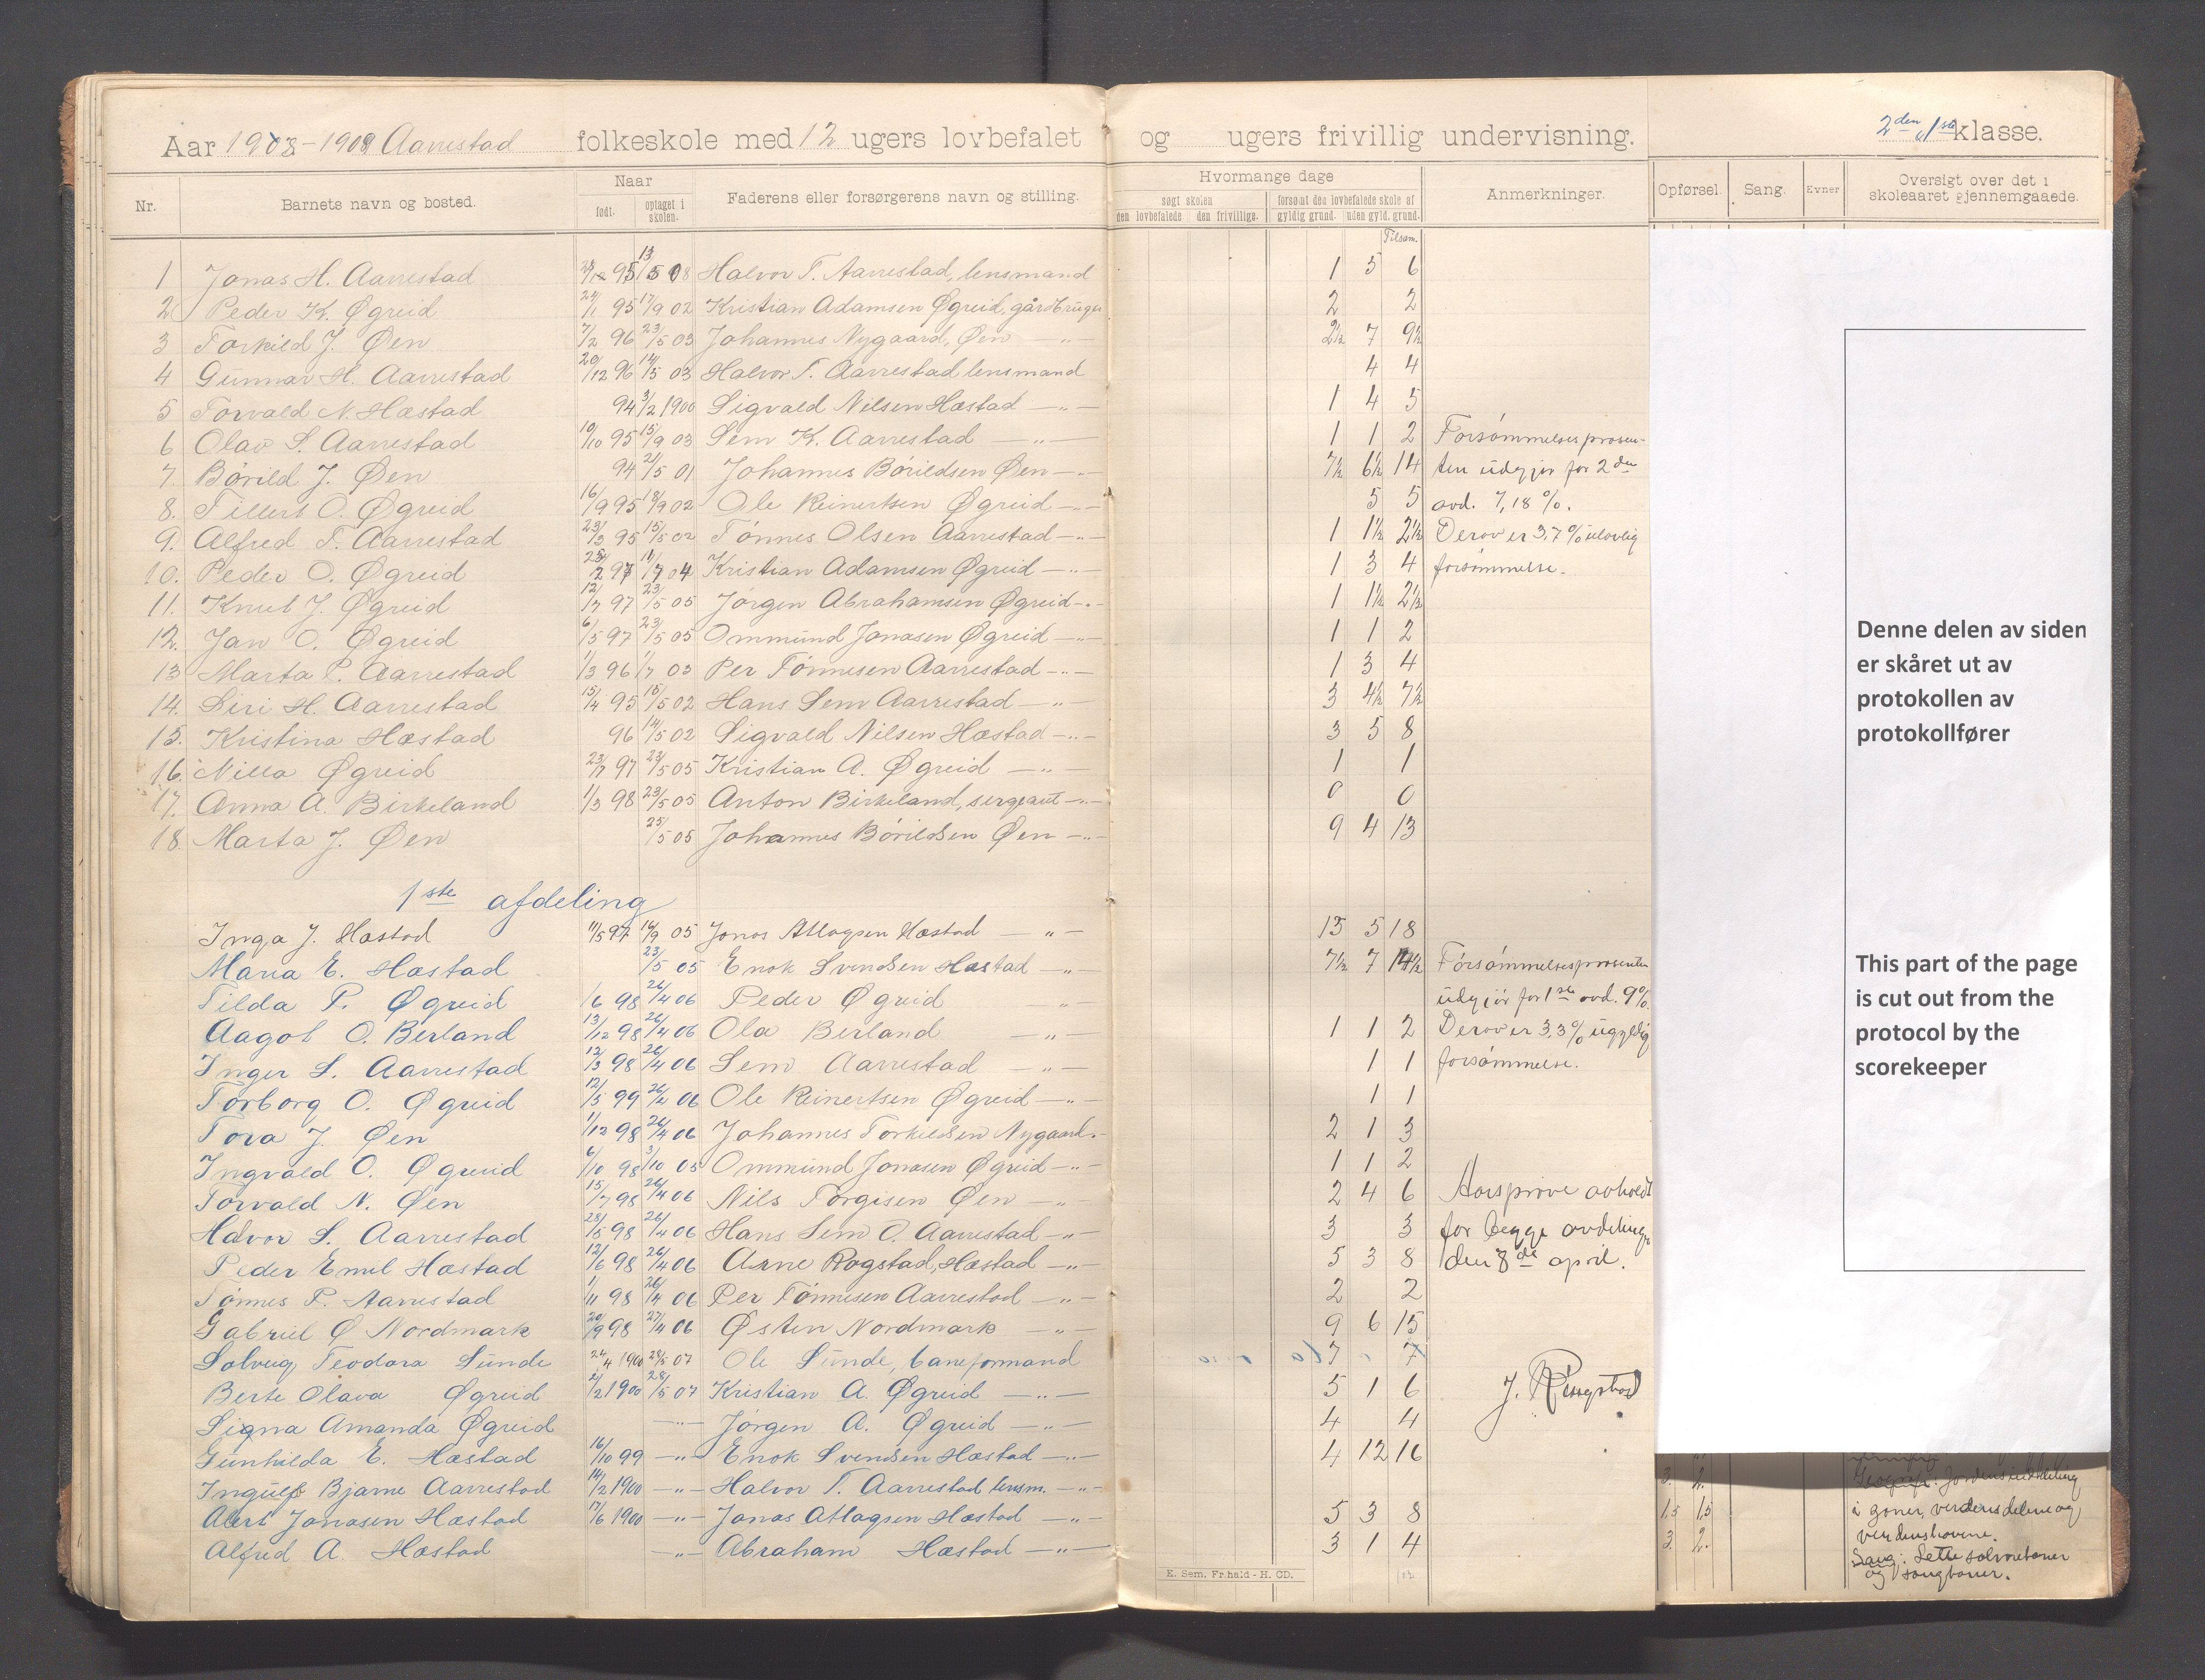 Aar 1908-1908 Aarrestad folkeskole med 12 ugers lovbefalet og ugers frivillig undervisning. 2den 1ste klasse.
Nr. Barnets navn og bosted. Naar født. optaget i skolen. Faderens eller forsørgerens navn og stilling. Hvormange dage søgt skolen den lovbefalede den frivillige. forsømt den lovbefalede skole af gyldig grund. uden gyld. grund. Anmerkninger. Opførsel. Sang. Evner Oversigt over det i skoleaaret gjennemgaaede.
Tilsam.
1 Jonas H. Aarrestad 95 13/5 08 Halvor T. Aarrestad, lensmand 1 5 6
2 Peder K. Øgreid 24/1 95 17/9 02 Kristian Adamsen Øgreid, gårdbruger 2 2
3 Torkild J. Øen 7/2 96 23/5 03 Johannes Nygaard, Øen —"— 2½ 7 9½
4 Gunnar H. Aarrestad 20/12 96 14/5 03 Halvor T. Aarrestad lensmand 4 4
5 Torvald N. Hæstad 94 3/2 1900 Sigvald Nilsen Hæstad —"— 1 4 5
6 Olav S. Aarrestad 10/10 95 15/9 03 Sem K. Aarrestad —"— 1 1 2 Forsømmelsesprosen-
7. Børild J. Øen 94 21/5 01 Johannes Børildsen Øen —"— 7½ 6½ 14 ten udgjør for 2den
8. Tillert O. Øgreid 16/9 95 18/9 02 Ole Reinertsen Øgreid —"— 5 5 avd. 7,18 %.
9. Alfred T. Aarrestad 23/3 95 15/5 02 Tønnes Olsen Aarrestad —"— 1 1½ 2½ Derav er 3,7 % ulovlig
10. Peder O. Øgreid 97 1/7 04 Kristian Adamsen Øgreid —"— 1 3 4 forsømmelse.
11. Knut J. Øgreid 12/7 97 23/5 05 Jørgen Abrahamsen Øgreid —"— 1 1½ 2½
12. Jan O. Øgreid 6/5 97 23/5 05 Ommund Jonasen Øgreid —"— 1 1 2
13 Marta P. Aarrestad 1/3 96 1/7 03 Per Tønnesen Aarrestad —"— 1 3 4
14. Siri H. Aarrestad 15/4 95 15/5 02 Hans Sem Aarrestad —"— 3 4½ 7½
15. Kristina Hæstad 96 14/5 02 Sigvald Nilsen Hæstad —"— 3 5 8
16. Nilla Øgreid 23/7 97 23/5 05 Kristian A. Øgreid —"— 1 1
17. Anna A. Birkeland 1/3 98 23/5 05 Anton Birkeland, sergeant —"— 0 0
18. Marta J. Øen 25/5 05 Johannes Børildsen Øen —"— 9 4 13
1ste afdeling
Inga J. Hæstad 11/5 97 14/9 05 Jonas Atlagsen Hæstad —"— 13 5 18
Maria E. Hæstad 23/5 05 Enok Svendsen Hæstad —"— 7½ 7 14½ Forsømmelsesprosenten
Tilda P. Øgreid 1/6 98 26/4 06 Peder Øgreid —"— udgjør for 1ste avd. 9%.
Aagot O. Berland 13/12 98 26/4 06 Ola Berland —"— 1 1 2 Derav er 3,3 % ugyldig
Inger S. Aarrestad 12/3 98 26/4 06 Sem Aarrestad —"— 1 1 forsømmelse.
Torborg O. Øgreid 12/5 99 26/4 06 Ole Reinertsen Øgreid —"— 1 1
Tora J. Øen 1/12 98 26/4 06 Johannes Torkildsen Nygaard 2 1 3
Ingvald O. Øgreid 6/10 98 3/10 05 Ommund Jonasen Øgreid —"— 1 1 2
Torvald N. Øen 15/7 98 26/4 06 Nils Torgisen Øen —"— 2 4 6 Aarsprøve avholdt
Halvor S. Aarrestad 28/5 98 26/4 06 Hans Sem O. Aarrestad —"— 3 3 for begge avdelinger
Peder Emil Hæstad 12/6 98 26/4 06 Arne Rogstad, Hæstad —"— 5 3 8 den 8de april.
Tønnes P. Aarrestad 1/11 98 26/4 06 Per Tønnesen Aarrestad —"— 2 2
Gabriel Ø Nordmark 20/9 98 27/4 06 Østen Nordmark —"— 9 6 15
Solveig Teodora Sunde 24/4 1900 28/5 07 Ole Sunde, baneformand 7 7
Berte Olava Øgreid 2/2 1900 28/5 07 Kristian A. Øgreid —"— 5 1 6 J.
Signa Amanda Øgreid —"— Jørgen A. Øgreid —"— 4 4
Gunhilda E. Hæstad 16/10 99 —"— Enok Svendsen Hæstad —"— 4 12 16
Ingulf Bjarne Aarrestad 14/2 1900 —"— Halvor T. Aarrestad lensm. —"— 3. 2. Geografi: Jordens inddeling
Albert Jonasen Hæstad 17/6 1900 —"— Jonas Atlagsen Hæstad —"— 5 3 8 1,5 1,5 i zoner, verdensdelene og
Alfred A. Hæstad —"— Abraham Hæstad —"— 3 1 4 3. 2. verdenshavene.
Sang: Lette salmetoner
og sangtoner.
E. Sem, Fr.hald - H. CD.
Denne delen av siden
er skåret ut av
protokollen av
protokollfører
This part of the page
is cut out from the
protocol by the
scorekeeper